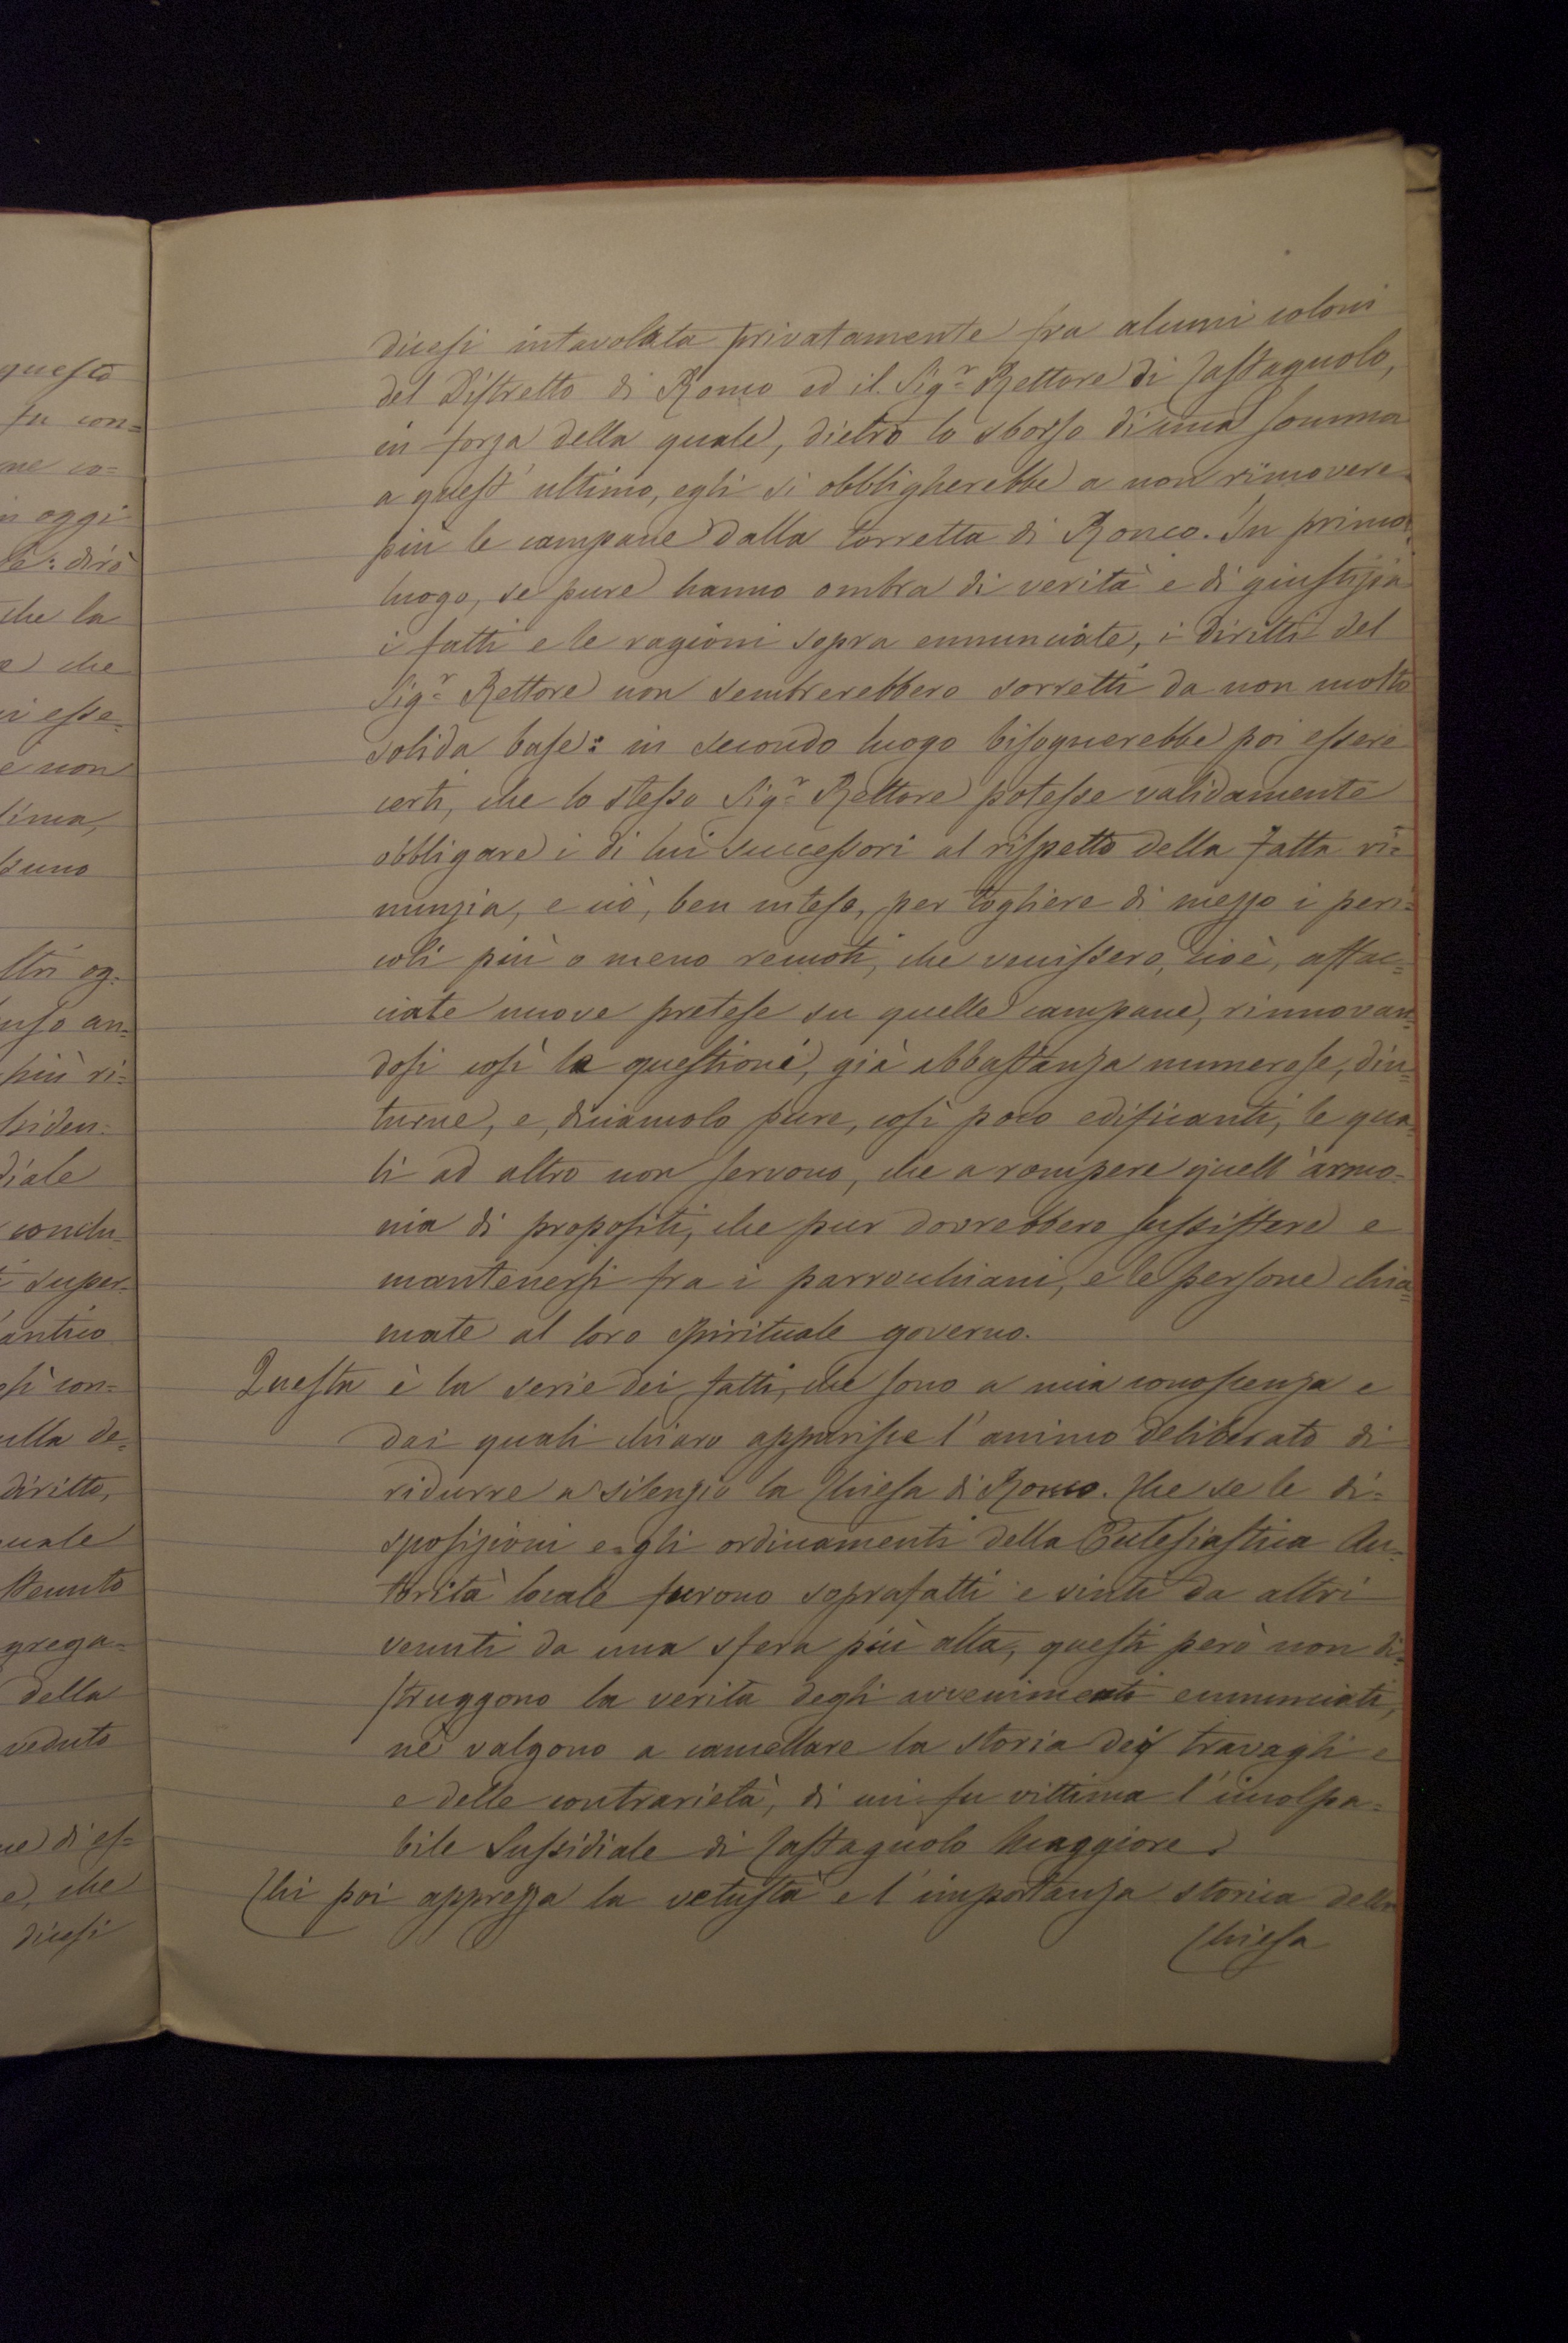 questo
fu con=
me co=
in oggi
dirò
che la
e) che
esse=
e non
suno
ltri og=
nso an=
più ri=
ssiden=
diale
conclu=
super=
antico
con=
ulla de=
diritto,
quale
stenuto
grega=
della
veduto
ne) di es=
e, che
dicesi
dicesi intavolata privatamente fra alcuni coloni
del Distretto di Ronco ed il Sigr. Rettore di Castagnolo,
in forza della quale, dietro lo sborso di una somma
a quest' ultimo, egli si obbligherebbe a non rimovere
più le campane dalla torretta di Ronco. In primo
luogo, se pure hanno ombra di verità e di giustizia
i fatti e le ragioni sopra ennunciate, i diritti del
Sigr. Rettore non sembrerebbero sorretti da non molto
solida base: in secondo luogo bisognerebbe poi essere
certi, che lo stesso Sigr. Rettore potesse validamente
obbligare i di lui successori al rispetto della fatta ri=
nunzia, e ciò, ben inteso, per togliere di mezzo i peri=
coli più o meno remoti, che venissero, cioè, affac=
ciate nuove pretese su quelle campane, rinnovan=
dosi così le questioni, già abbastanza numerose, diu=
turne, e, diciamolo pure, così poco edificanti, le qua=
li ad altro non servono, che a rompere quell' armo=
nia di propositi, che pur dovrebbero sussistere e
mantenersi fra i parrocchiani, e le persone chia=
mate al loro spirituale governo.
Questa è la serie dei fatti, che sono a mia conoscenza e
dai quali chiaro apparisce l' animo deliberato di
ridurre a silenzio la Chiesa di Ronco. Che se le di=
sposizioni e gli ordinamenti della Ecclesiastica Au=
torità locale furono soprafatti e vinti da altri
venuti da una sfera più alta, questi però non di=
struggono la verità degli avvenimenti ennunciati,
nè valgono a cancellare la storia dei travagli e
e delle contrarietà, di cui fu vittima l' incolpa=
bile Sussidiale di Castagnolo Maggiore.
Chi poi apprezza la vetustà e l' importanza storica della
Chiesa